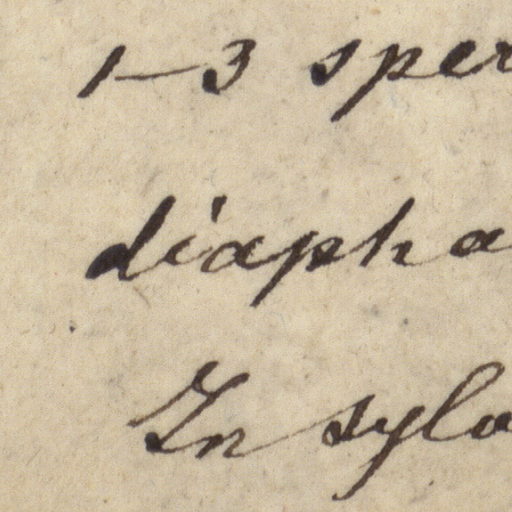 1–3 sper
diapha
In sylv